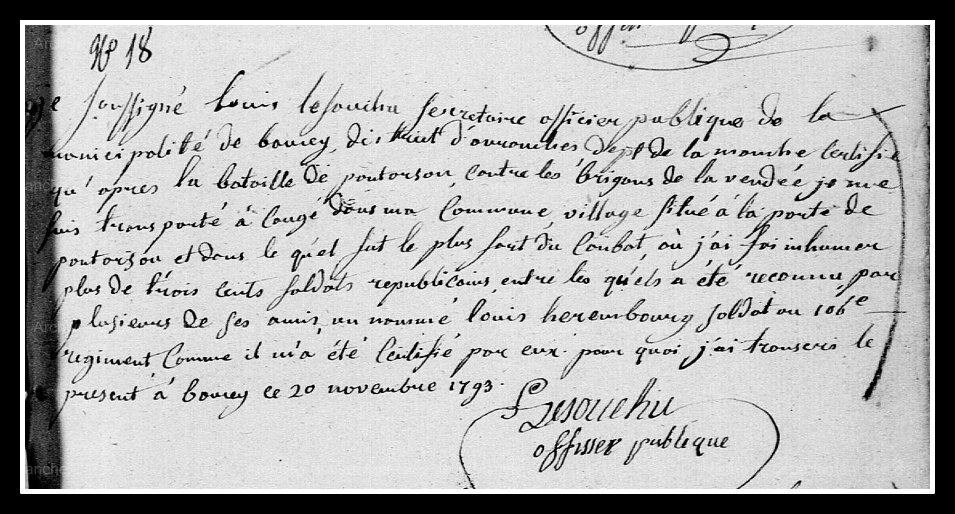 N° 18
je soussigné louis lesouchu secretaire officier publique de la
municipalité de boucey district d'avranches dept de la manche certifie
qu'apres la bataille de pontorson contre les brigans de la vendée je me
suis transporté à caugé dans ma commune village situé à la porte de
pontorson et dans le qu'el fut le plus fort du combat, où j'ai fai inhumer
plus de trois cents soldats republicains, entre les qu'els a été reconnu par
plusieurs de ses amis, un nommé louis herembourg soldat au 106e
regiment comme il m'a été certifié par eux. pour quoi j'ai transcris le
present à boucey ce 20 novembre 1793.
Lesouchu
offisser publique